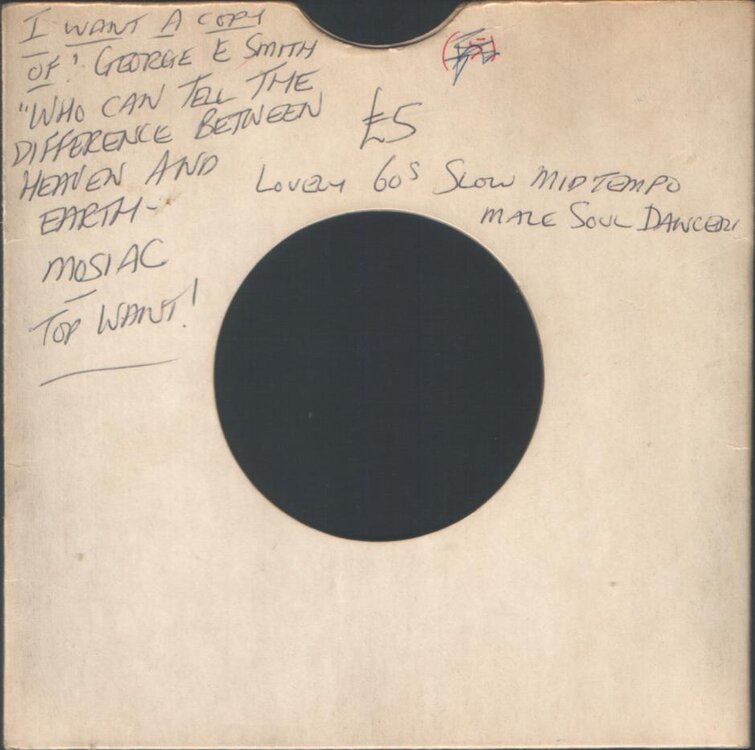 I WANT A COPY
OF! GEORGE E SMITH
"WHO CAN TELL THE
DIFFERENCE BETWEEN
HEAVEN AND
EARTH-
MOSIAC
TOP WANT!
£5
LOVELY 60S SLOW MIDTEMPO
MALE SOUL DANCER